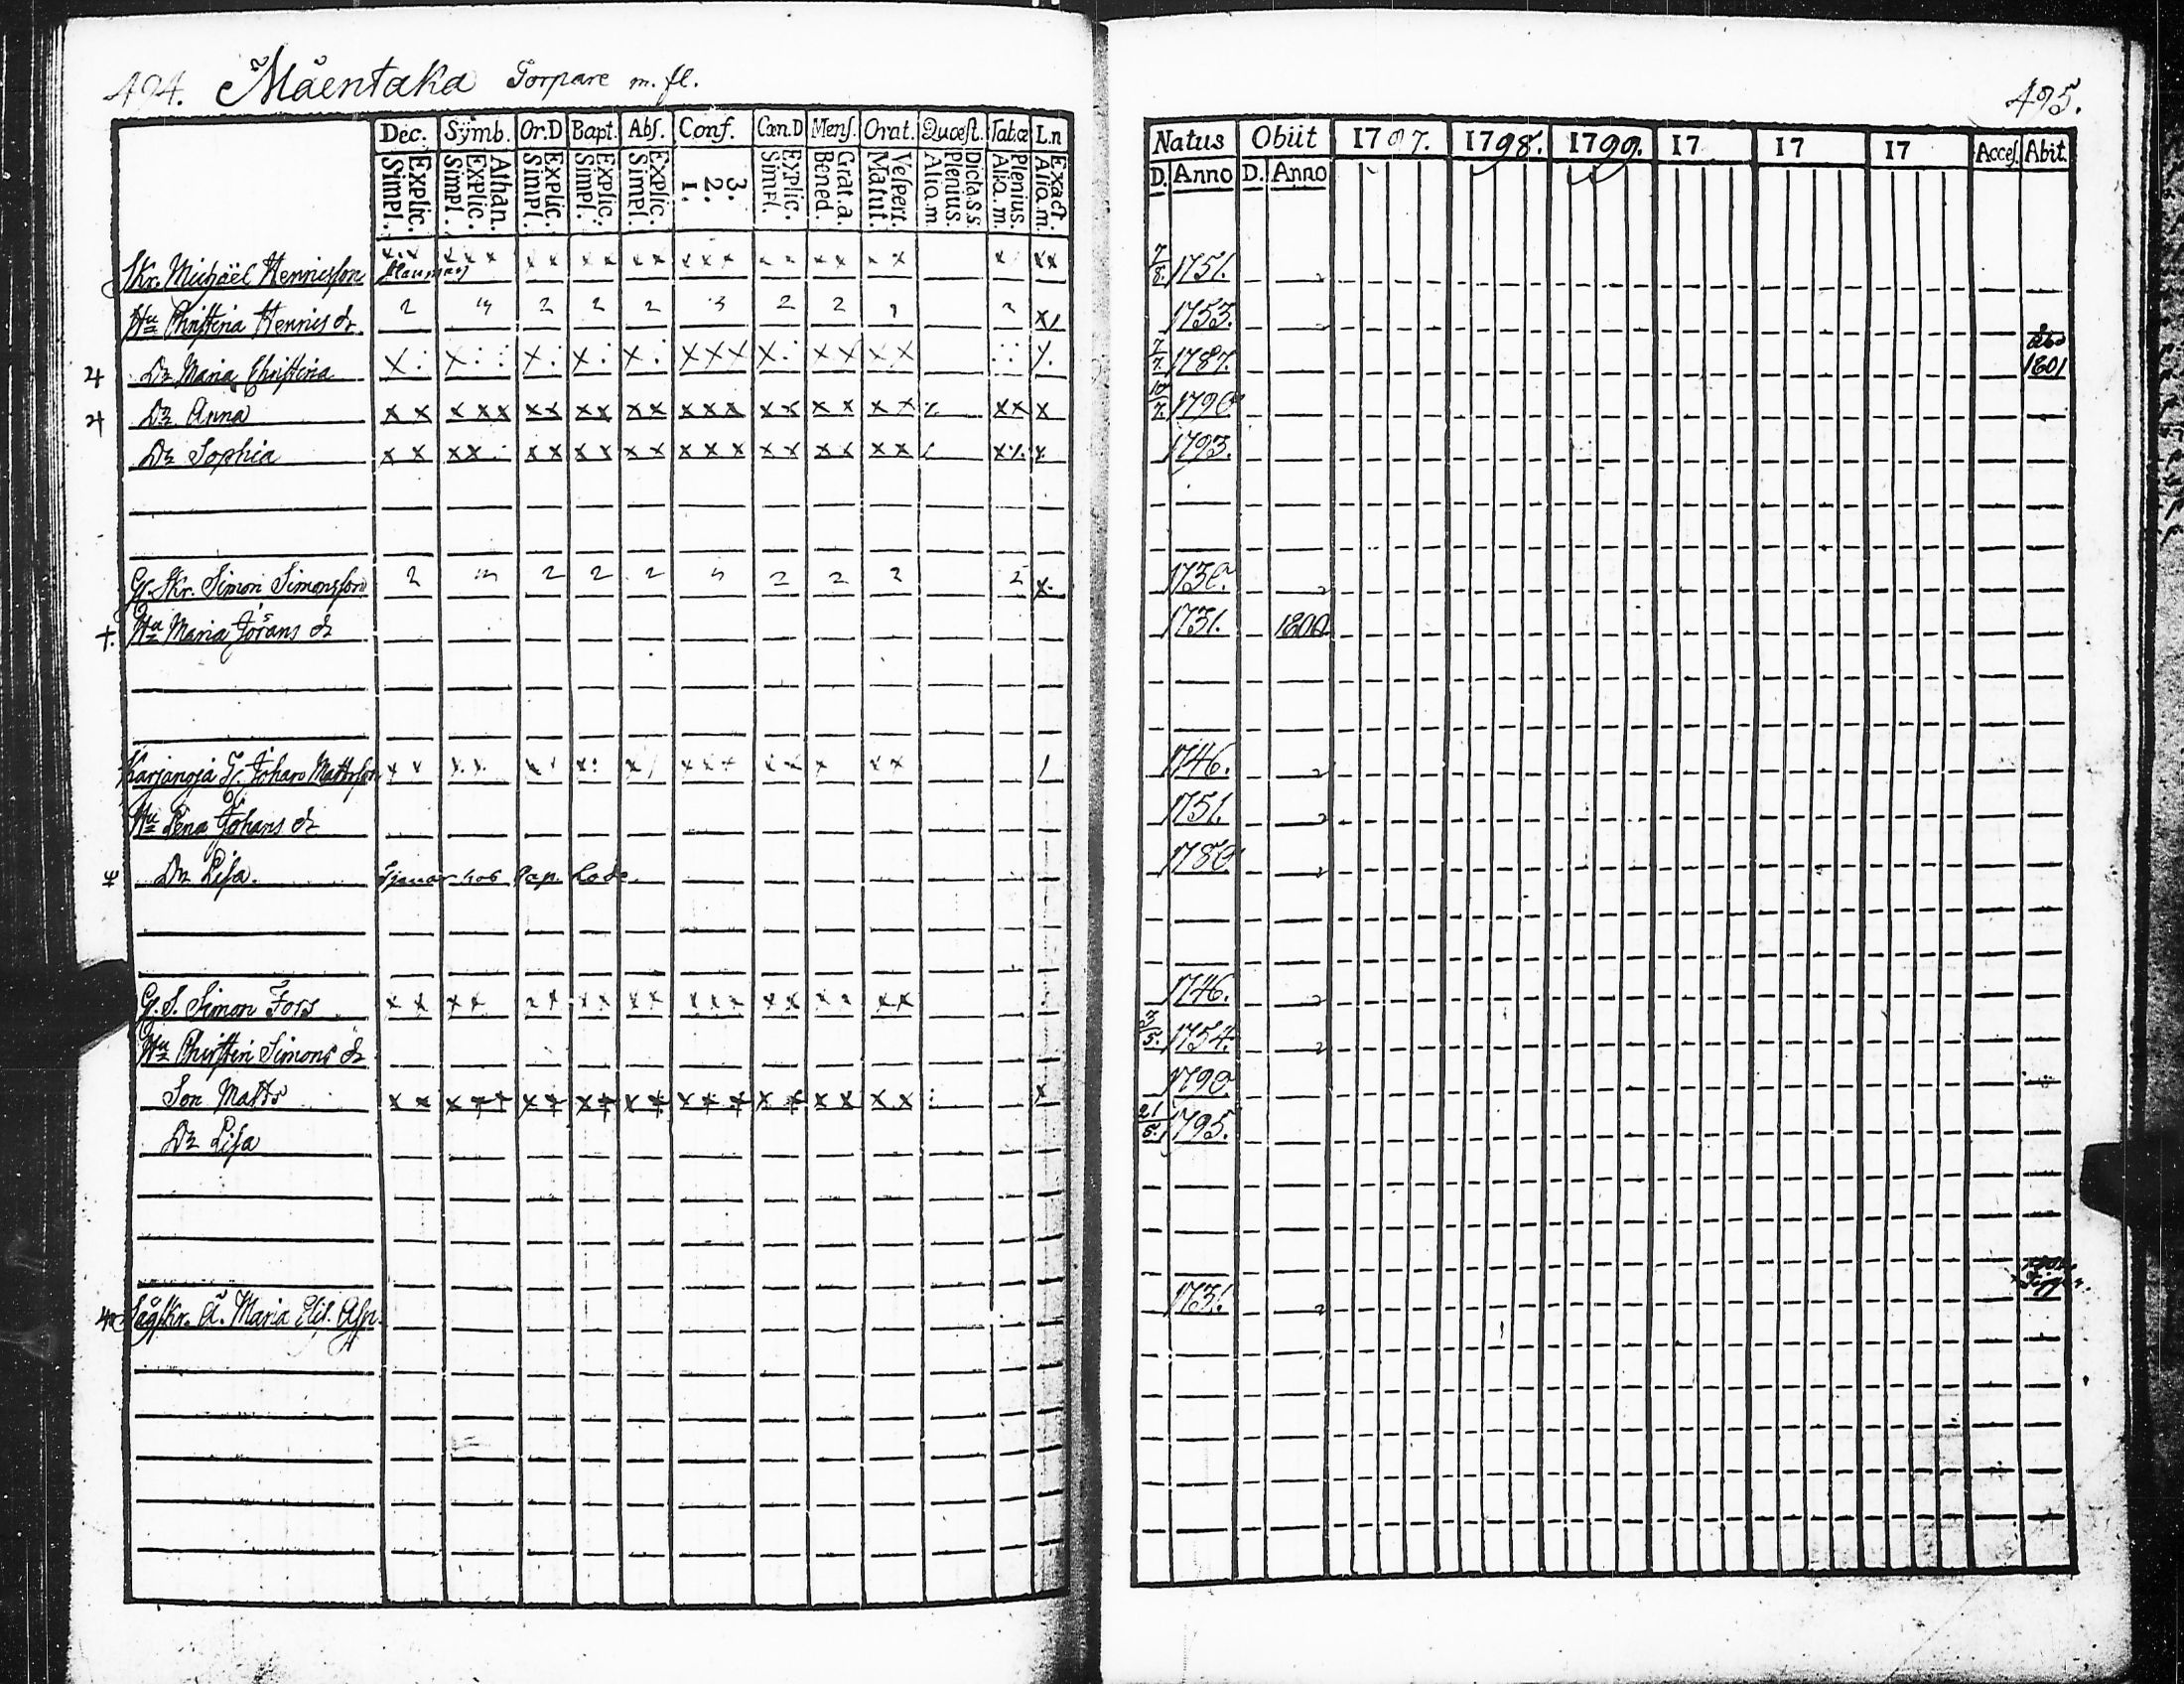 494. Mäentaka Torpare m. fl.
Dec. Sÿmb. Or.D Bapt. Abſ. Conf. Cœn.D Menſ. Orat. Quæſt. Tabæ L.n
Explic. Simpl. Athan. Explic. Simpl. Explic. Simpl. Explic. Simpl. Explic. Simpl. 3. 2. 1. Explic. Simpl. Grat.a. Bened. Veſpert. Matut. Dicta.s.s Plenius. Aliq.m. Plenius. Aliq.m. Exact. Aliq.m.
Skr. Michäel Henricsſon
Hu Christina Henrics dr 2 3 2 2 2 3 2 2 2 2
Dr Maria Christina
Dr Anna
Dr Sophia
G. Skr. Simon Simonsſon 2 3 2 2 2 3 2 2 2 2
†. Hu Maria Jörans dr
Karjanoja G. Johan Mattsſon
Hu Lena Johans dr
Dr Liſa. Tjenar hos Cap.
G. S. Simon Fors
Hu Christin Simons dr
Son Matts
Dr Liſa
Sågskr. Ä. Maria Elis.
495.
Natus Obiit 1797. 1798. 1799. 17 17 17 Acceſ. Abit.
D. Anno D. Anno
7/8. 1751.
1753.
7/7. 1787. 1801
10/7. 1790
1793.
1730.
1731. 1800
1746.
1751.
1780
1746.
3/5. 1754.
1790.
21/5. 1795.
1731.